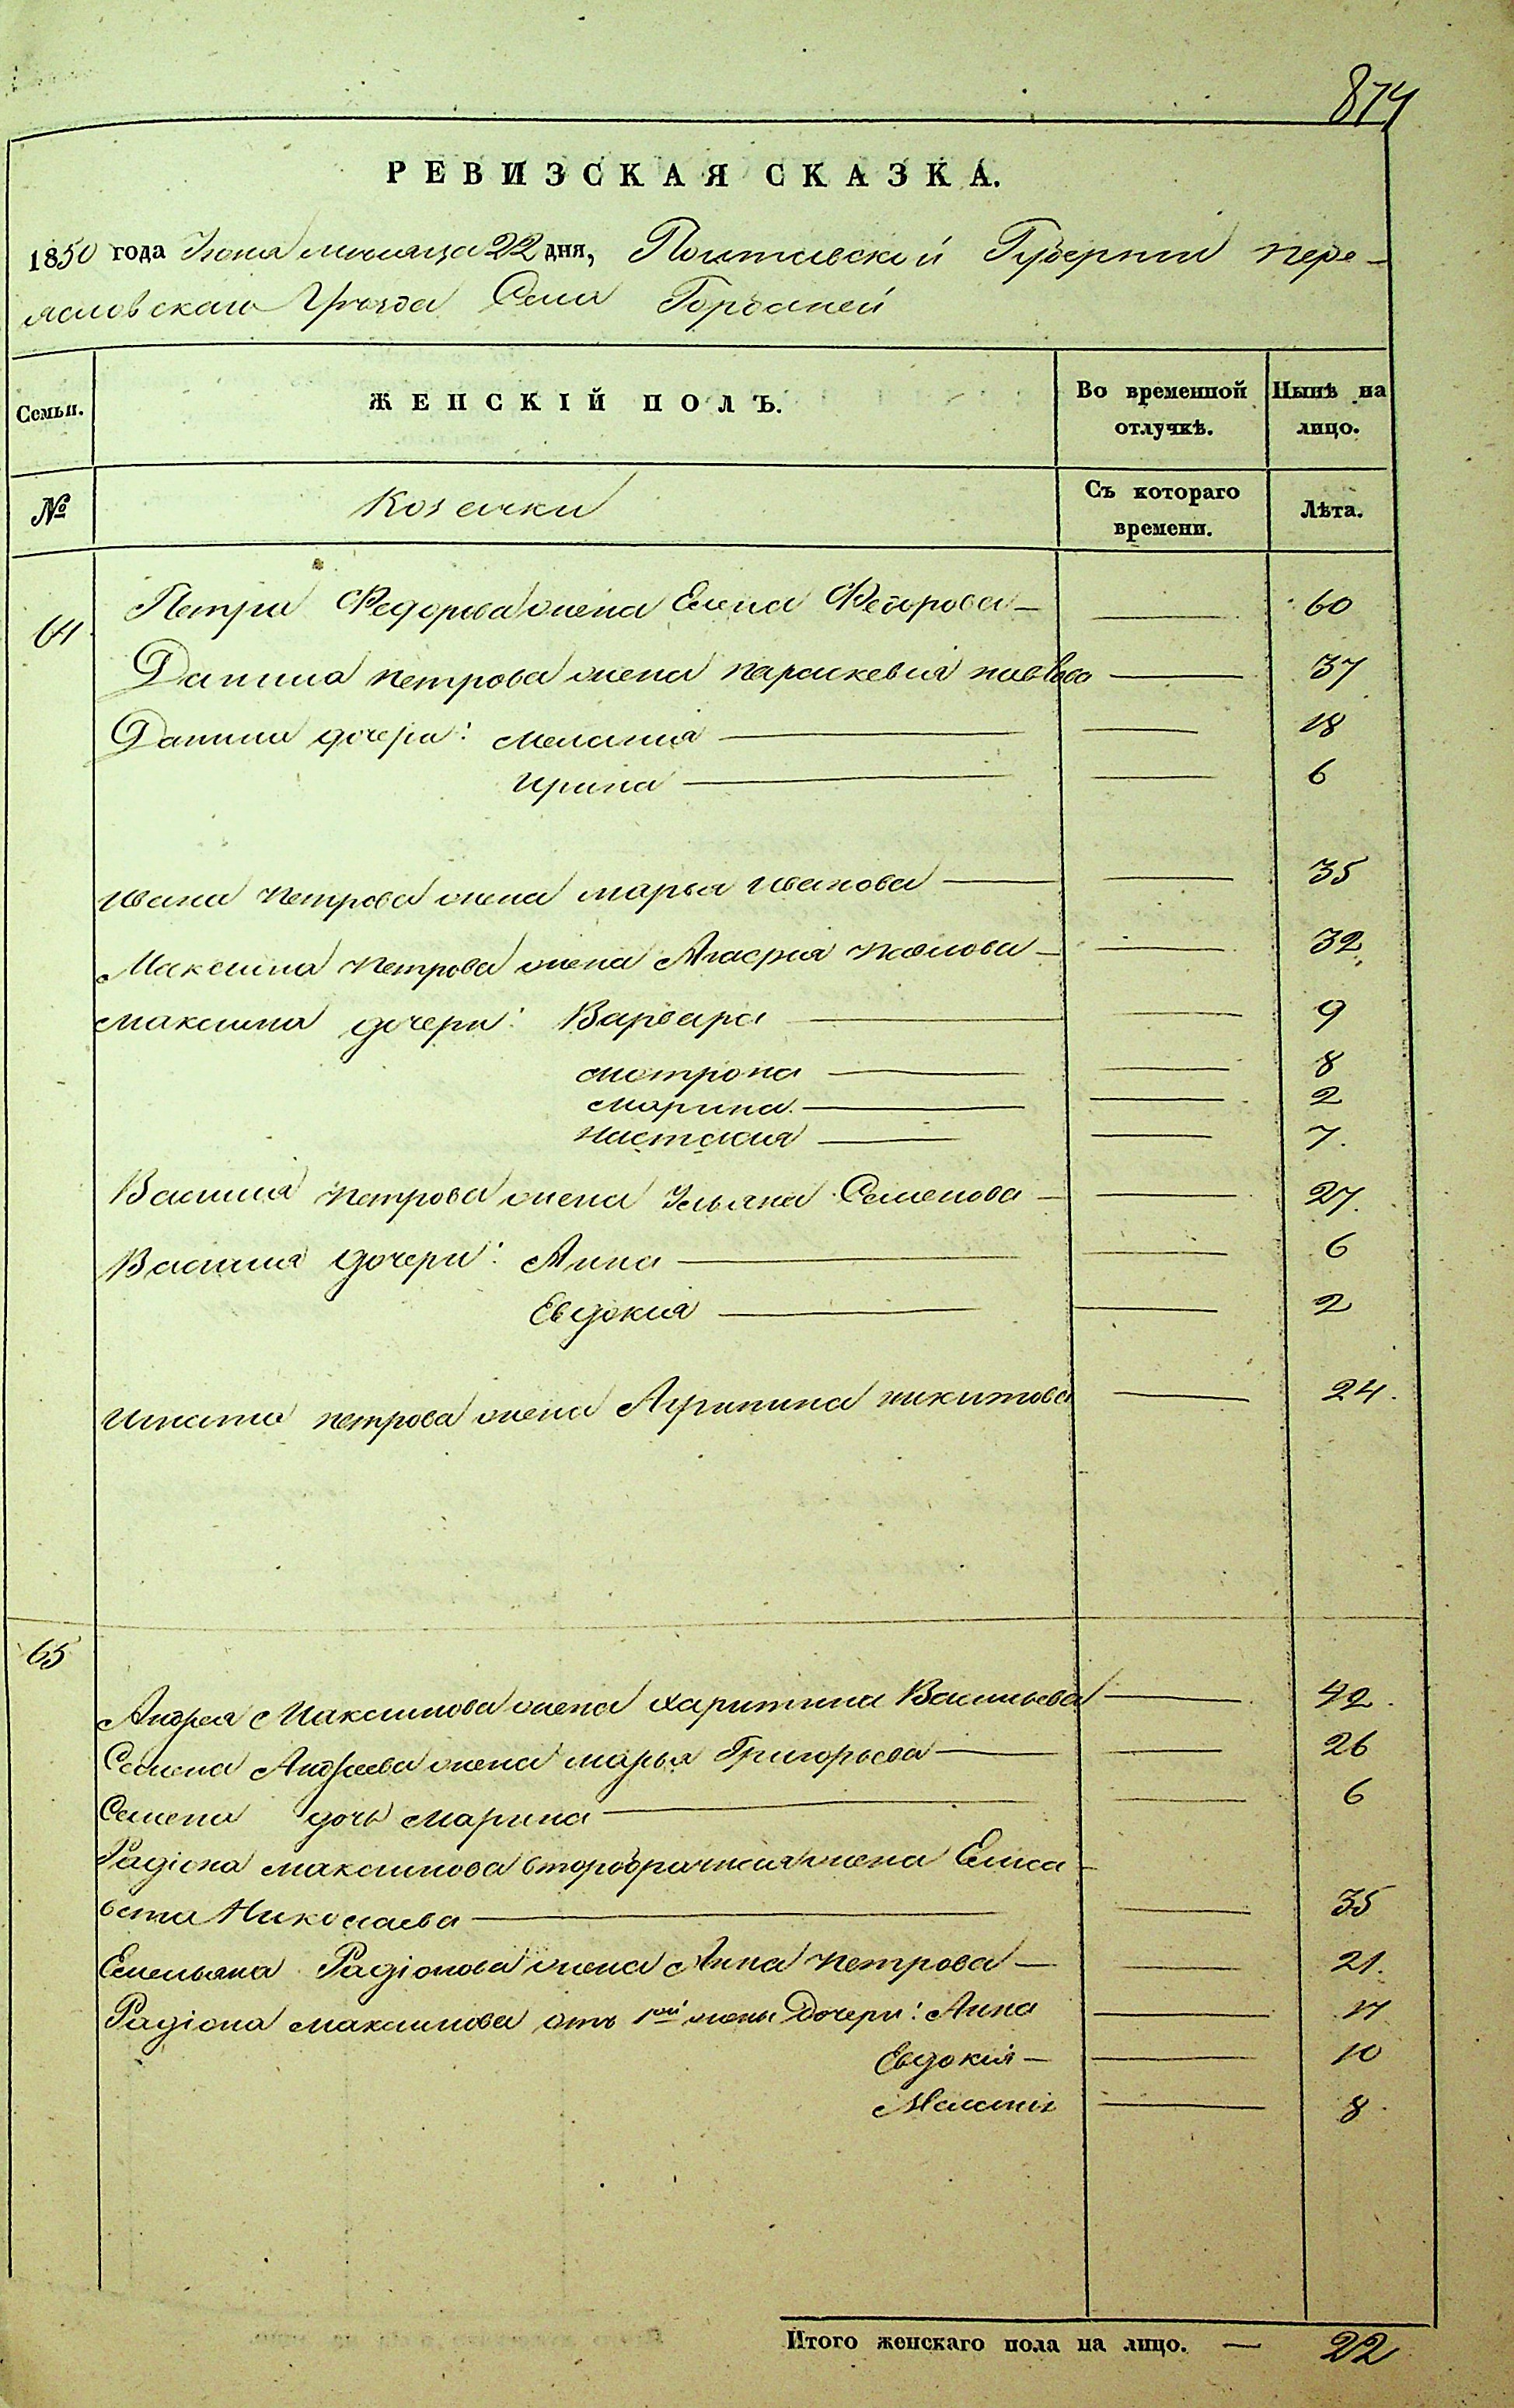 874
РЕВИЗСКАЯ СКАЗКА.
1850 года Июня месяца 22 дня, Полтавской Губернии Пере-
яславскаго Уезда Села Горбаней
Семьи.
ЖЕНСКІЙ ПОЛЪ.
Во временной отлучкѣ.
Нынѣ на лицо.
№
Козачки
Съ котораго времени.
Лѣта.
64 Петра Федорова жена Елена Федорова — 60
Данила Петрова жена Параскевия Павлова — 37
Данила дочери: Мелания — 18
Ирина — 6
Ивана Петрова жена Марья Иванова — 35
Максима Петрова жена Агафия Павлова — 32
Максима дочери: Варвара — 9
Мотрона — 8
Марина — 2
Настасия — 7.
Василия Петрова жена Ульяна Семенова — 27.
Василия дочери: Анна — 6
Евдокия — 2
Игната Петрова жена Агрипина Никитова — 24.
65
Андрея Максимова жена Харитина Васильева — 42.
Семена Андреева жена Марья Григорьева — 26
Семена дочь Марина — 6
Радіона Максимова второбрачная жена Елиса-
вета Николаева — 35
Емельяна Радіонова жена Анна Петрова — 21.
Радіона Максимова отъ 1ой жены Дочери: Анна — 11
Евдокия — 10
Меланія — 8
Итого женскаго пола на лицо. — 22